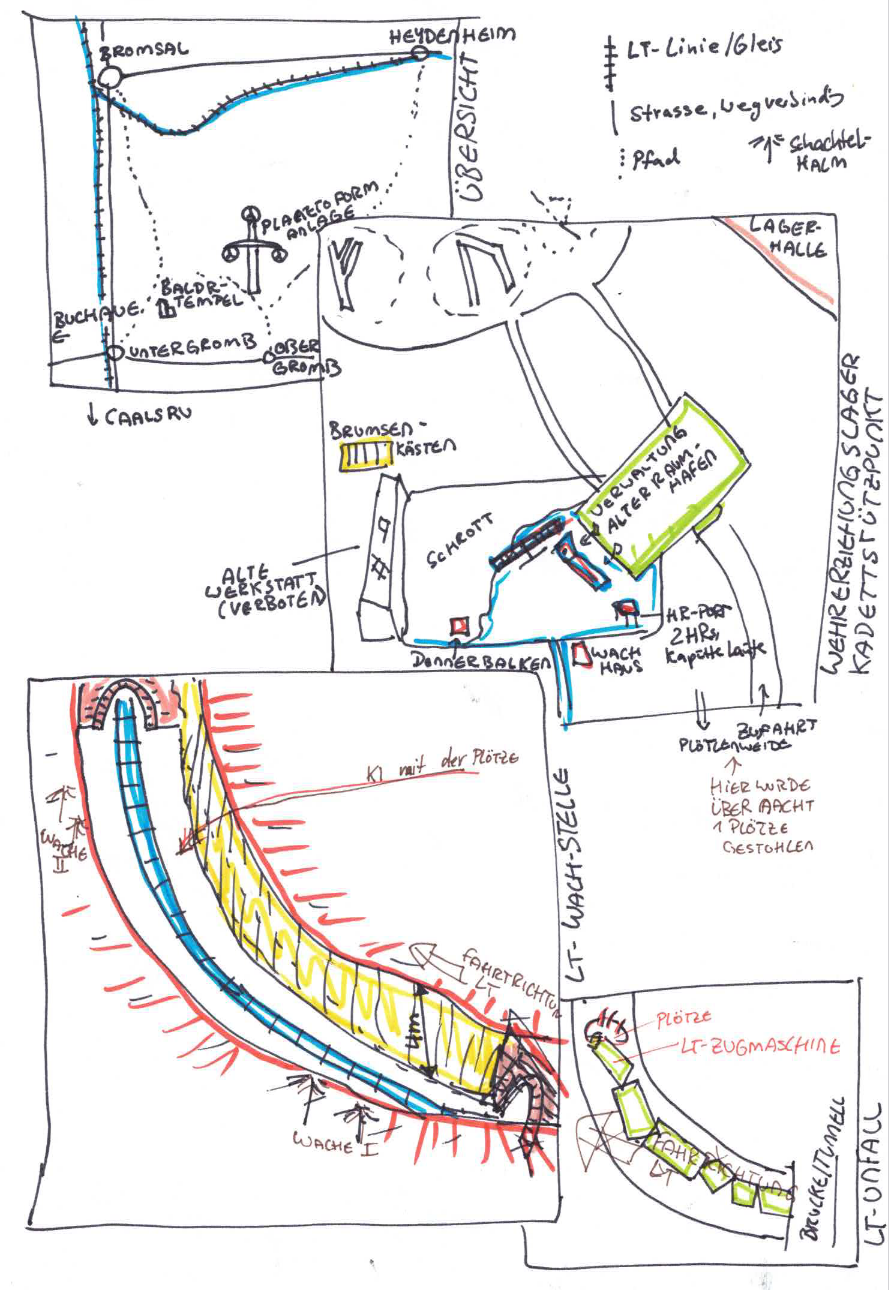 BROMSAL
HEYDENHEIM
ÜBERSICHT
LT-Linie/Gleis
Strasse, Wegverbind's
Pfad
Schachtel-
HALM
PLAETOFORM
ANLAGE
BALDR-
TEMPEL
BUCHAUE
E
UNTERGROMB
OBER
GROMB
CAALSRU
LAGER-
HALLE
WEHRERZIEHUNGSLAGER
KADETTSTÜTZPUNKT
BRUMSEN-
KÄSTEN
VERWALTUNG
ALTER RAUM-
HAFEN
SCHROTT
ALTE
WERKSTATT
(VERBOTEN)
DONNERBALKEN
WACH
HAUS
HR-PORT
2 HRs
Kaputte Läufe
ZUFAHRT
PLÖTZENWEIDE
HIER WURDE
ÜBER NACHT
1 PLÖTZE
GESTOHLEN
KI mit der PLÖTZE
WACHE
II
FAHRTRICHTUNG
LT
4m
WACHE I
LT-WACH-STELLE
PLÖTZE
LT-ZUGMASCHINE
FAHRTRICHTUNG
LT
BRÜCKE/TUNNELL
LT-UNFALL